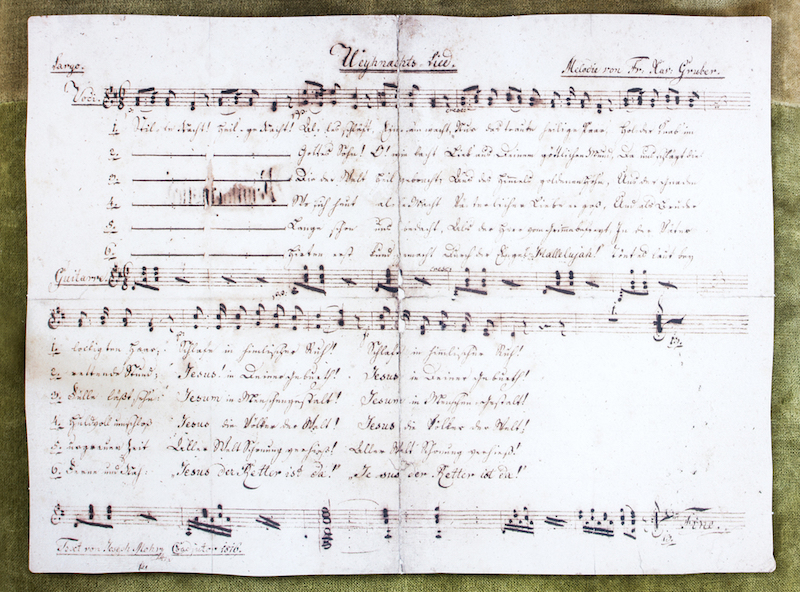 Weyhnachts-Lied.
Largo. Melodie von Fr. Xav. Gruber.
Voci.
1. Stil-le Nacht! Heil-ge Nacht! Alles schläft, Einsam wacht, Nur das traute heilige Paar, Holder Knab im
2. Gottes Sohn! O! wie lacht Lieb aus Deinem göttlichen Mund, Da uns schlägt die
3. Die der Welt Heil gebracht; Aus des Himmels goldenen Höhn, Aus der Gnaden
4. Wo sich heut alle Macht Väterlicher Liebe ergoß, Und als Bruder
5. Lange schon uns bedacht, Als der Herr vom Grimme befreyt, In der Väter
6. Hirten erst kund gemacht Durch der Engel Hallelujah! Tönt es laut bey
Guitarre.
1. lockigten Haar; Schlafe in himlischer Ruh! Schlafe in himlischer Ruh!
2. rettende Stund; Jesus! in Deiner Geburth! Jesus in Deiner Geburth!
3. Fülle läßt sehn: Jesum in Menschengestalt! Jesum in Menschengestalt!
4. Huldvoll umschloß Jesus die Völker der Welt! Jesus die Völker der Welt!
5. urgrauer Zeit Aller Welt Schonung verhieß! Aller Welt Schonung verhieß!
6. Ferne und Nah: „Jesus der Retter ist da!" „Jesus der Retter ist da!"
Fine.
Text von Joseph Mohr Coadjutor 1816.